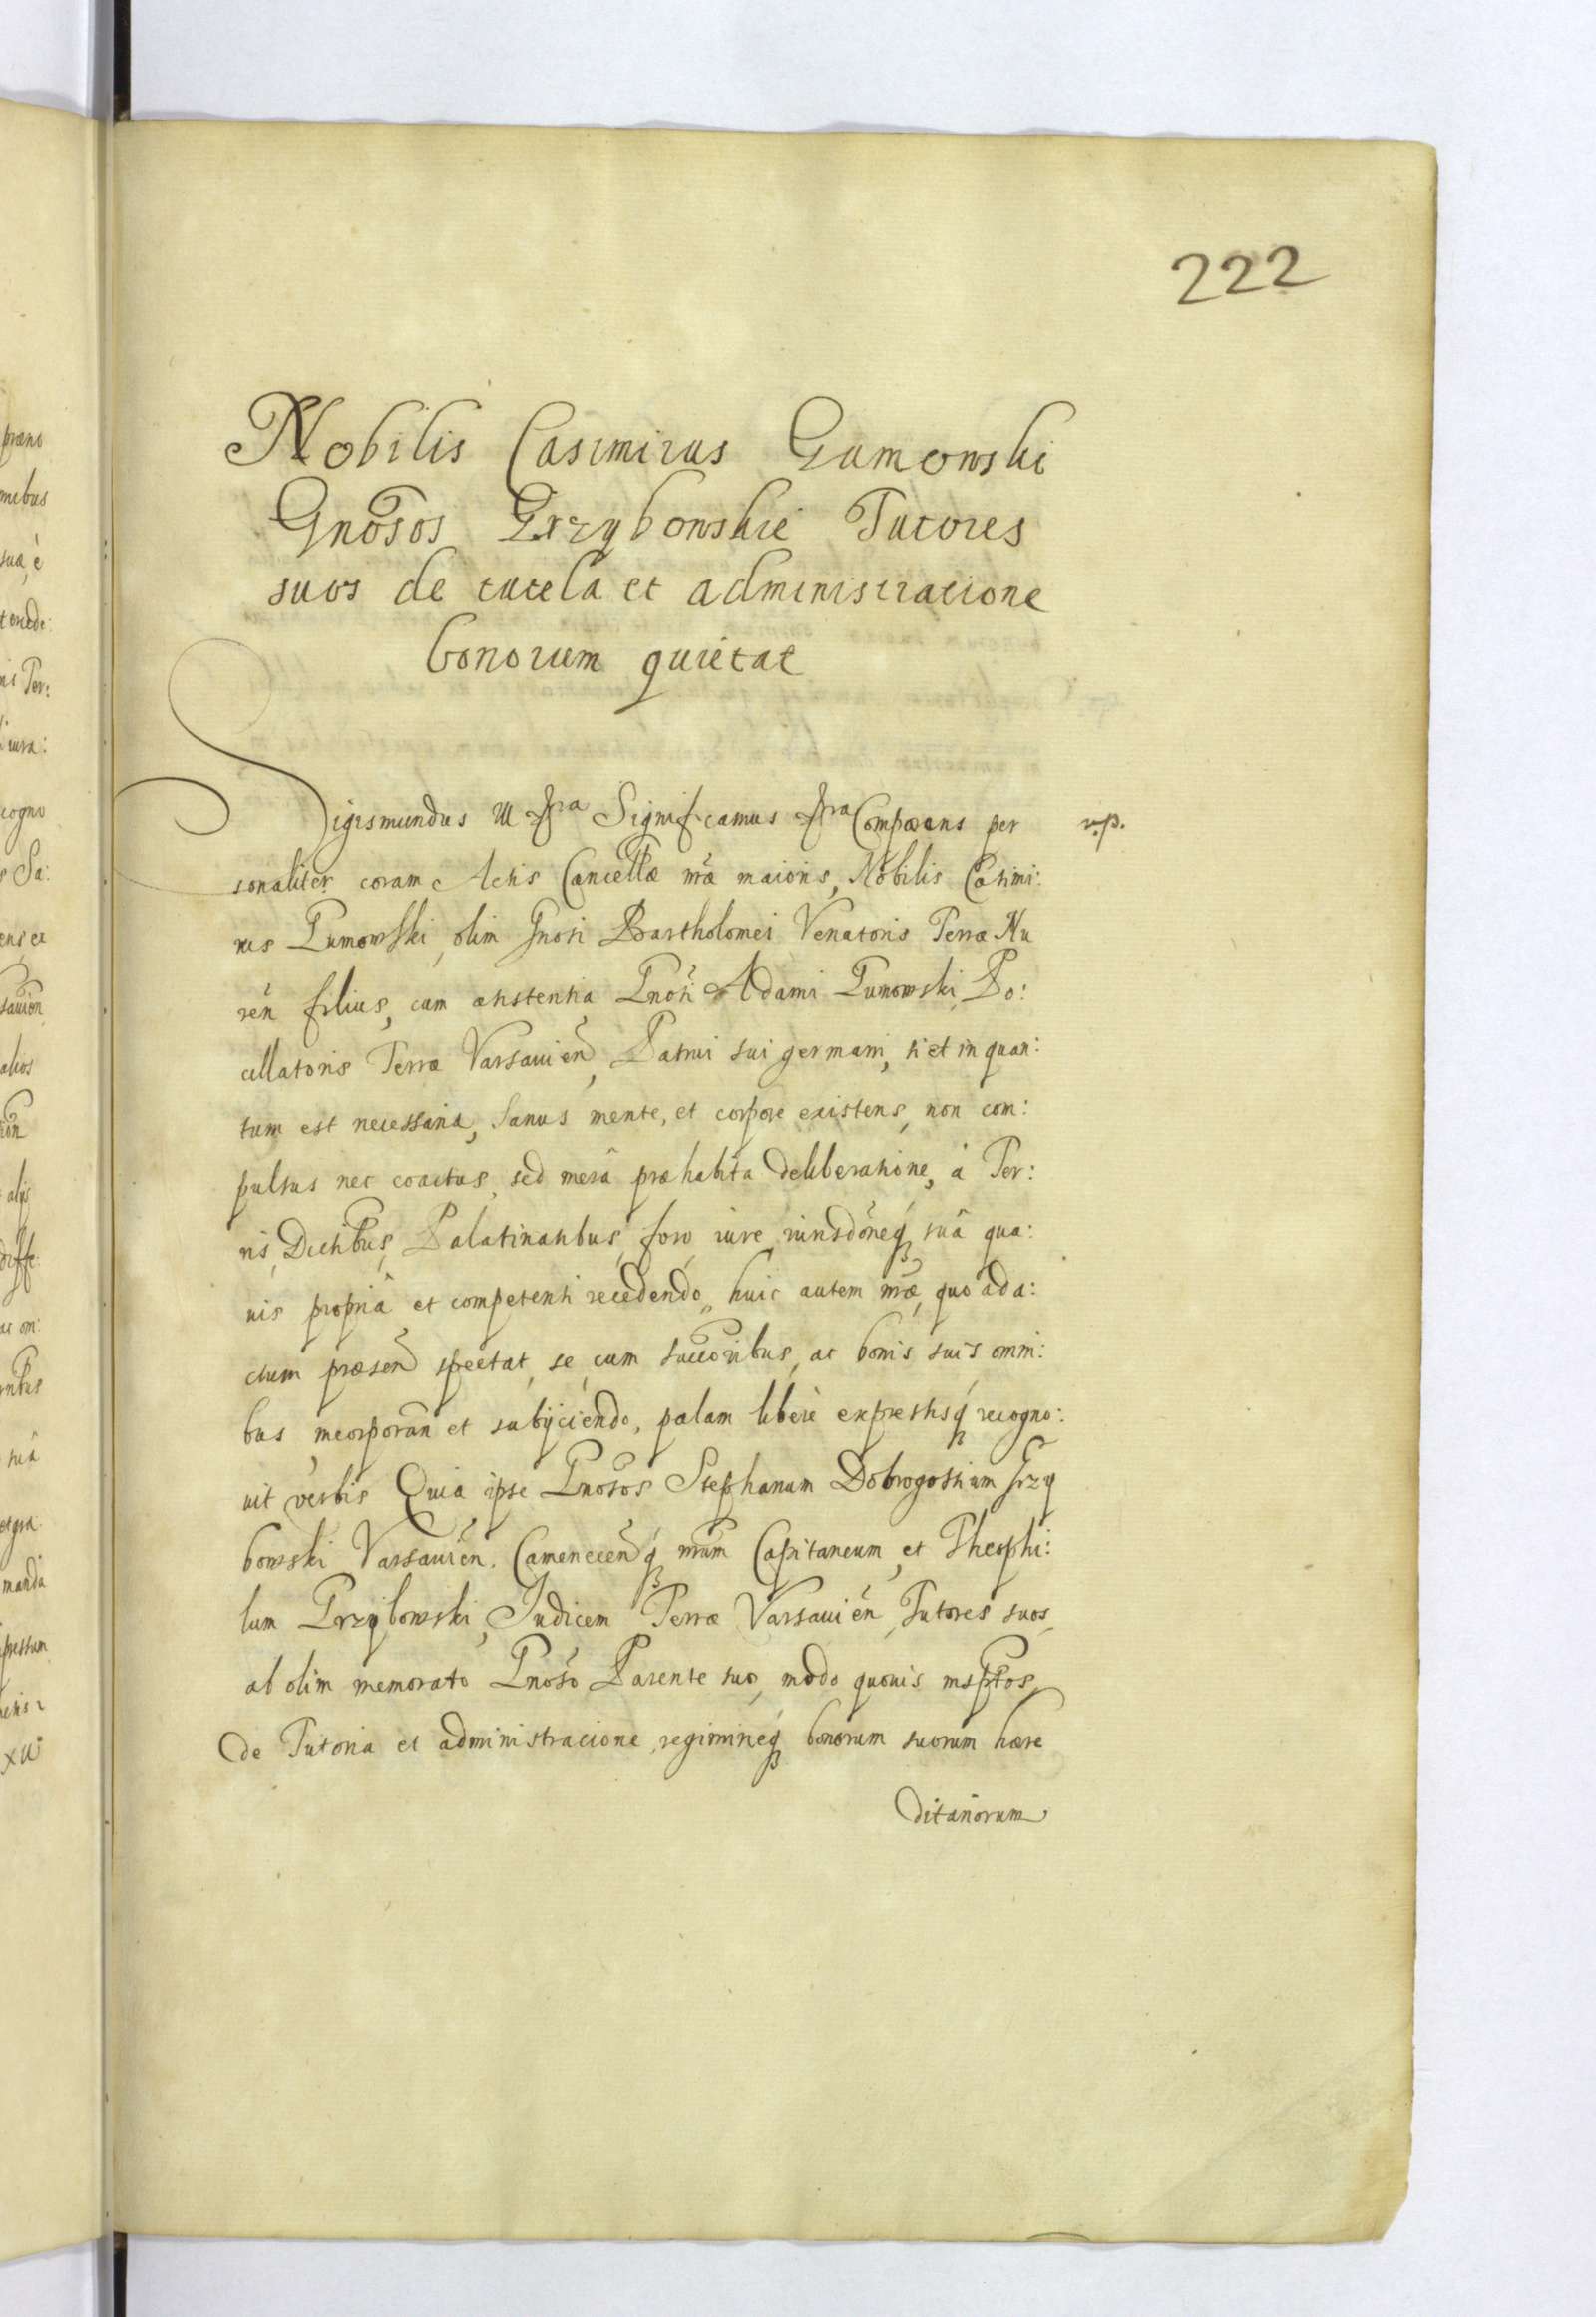 222
Nobilis Casimirus Gumowski
Gnosos Grzybowskie Tutores
suos de tutela et administratione
bonorum quietat
Sigismundus III &ra Significamus &ra Comparens per
v.p.
sonaliter coram Actis Cancellæ nræ maioris, Nobilis Casimi:
rus Gumowski, olim Gnosi Bartholomei Venatoris Terræ Nu
ren filius, cum assistentia Gnosi Adami Gumowski Po:
cillatoris Terræ Varsauien, Patrui sui germani, si et in quan:
tum est necessaria, Sanus mente, et corpore existens, non com:
pulsus nec coactus, sed merâ præhabita deliberatione, à Ter:
ris, Dictibus, Palatinatibus, foro iure iurisdoneq suâ qua:
uis propriâ et competenti recedendo, huic autem nræ, quo ad a:
ctum præsen spectat, se cum succoribus, ac bonis suis omni:
bus incorporan et subijciendo, palam liberè expressisq recogno:
uit verbis Quia ipse Gnosos Stephanum Dobrogostium Grzy
bowski Varsauien. Camenecenq nrum Capitaneum, et Theophi:
lum Grzybowski, Iudicem Terræ Varsauien, Tutores suos,
ab olim memorato Gnoso Parente suo, modo quouis insptos,
de Tutoria et administracione, regimineq bonorum suorum hære
ditariorum
præno
nibus
sua, è
is Ter:
iura:
cogno
s Sa:
ens ex
sauien
alios
alijs
diffe:
ac om:
suâ
manda